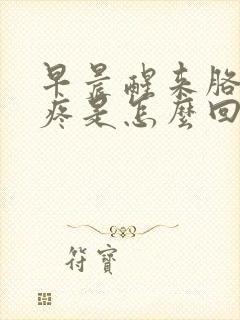 早晨醒来胳
疼是怎麼回
符寶